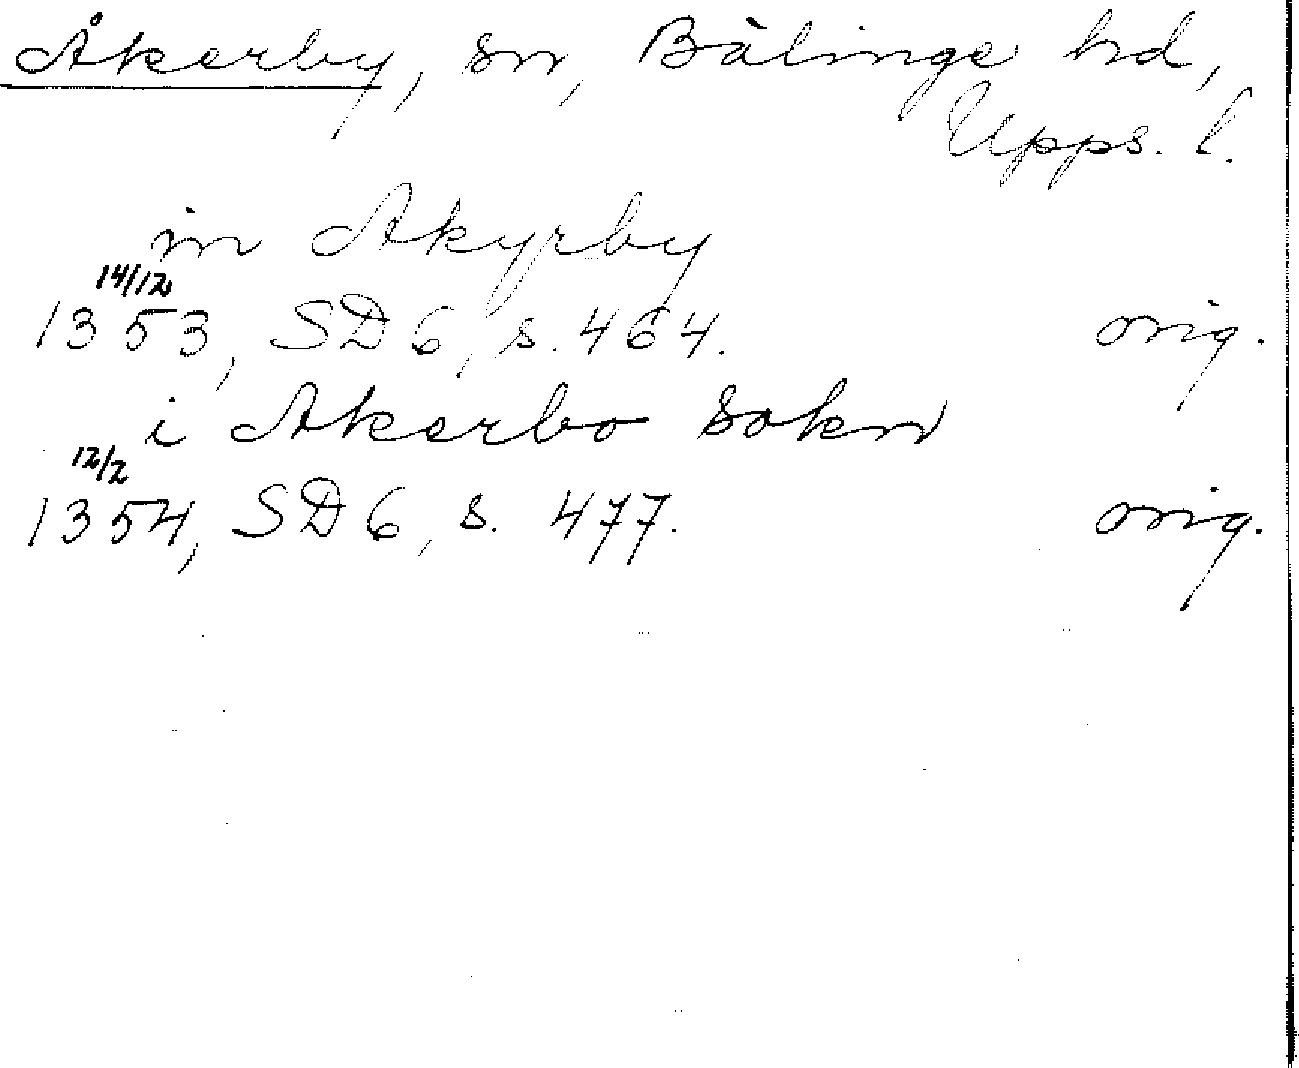 Åkerby, sn, Bälinge hd,
Upps. l.
in Akyrby
14/12
1353, SD 6, s. 464. orig.
i Akerbo sokn
12/2
1354, SD 6, s. 477. orig.